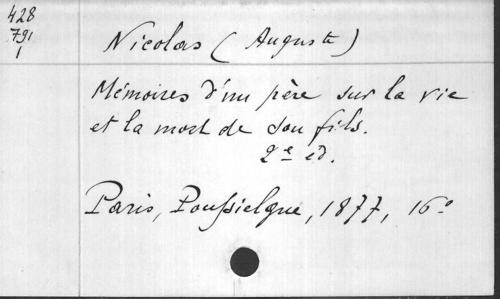 428
791
1
Nicolas (Auguste)
Mémoires d'un père sur la vie
et la mort de son fils.
2e éd.
Paris, Poussielgue, 1877, 16º